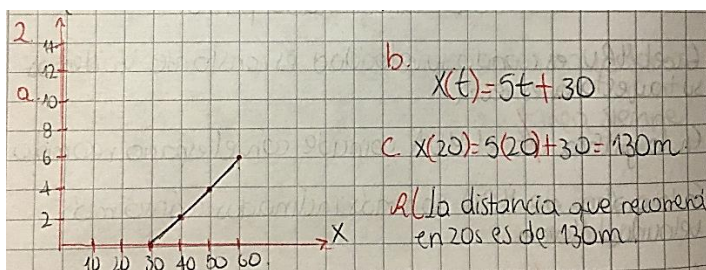 2.
a.
14
12
10
8
6
4
2
10 20 30 40 50 60
X
b.
X(t)=5t+30
c. X(20)=5(20)+30=130m
R( la distancia que recorrerá
en 20s es de 130m.